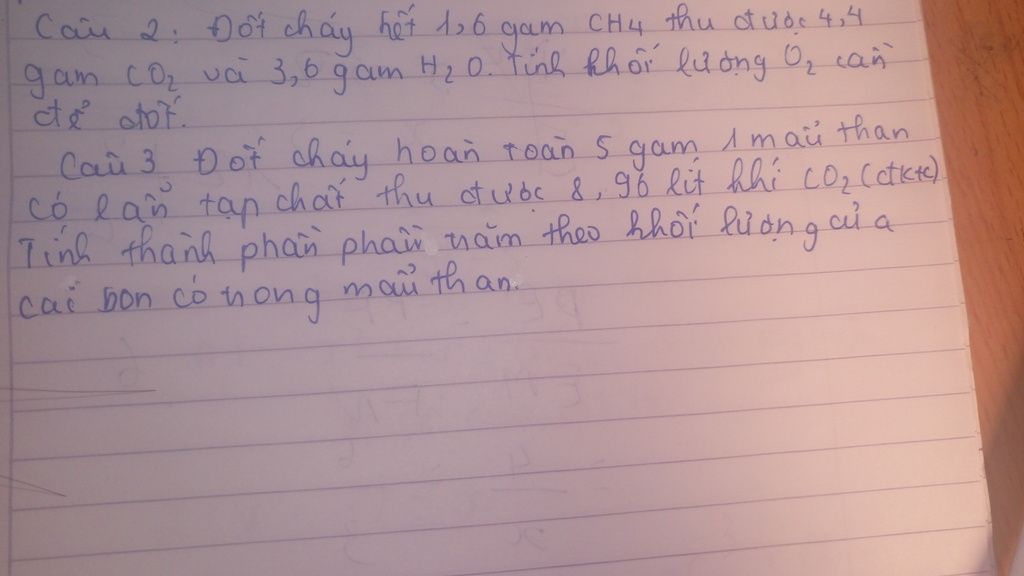 Câu 2: Đốt cháy hết 1,6 gam CH4 thu được 4,4
gam CO2 và 3,6 gam H2O. Tính khối lượng O2 cần
để đốt.
Câu 3 Đốt cháy hoàn toàn 5 gam 1 mẫu than
có lẫn tạp chất thu được 8,96 lít khí CO2 (đktc)
Tính thành phần phần năm theo khối lượng của
các bon có nong mẫu than.